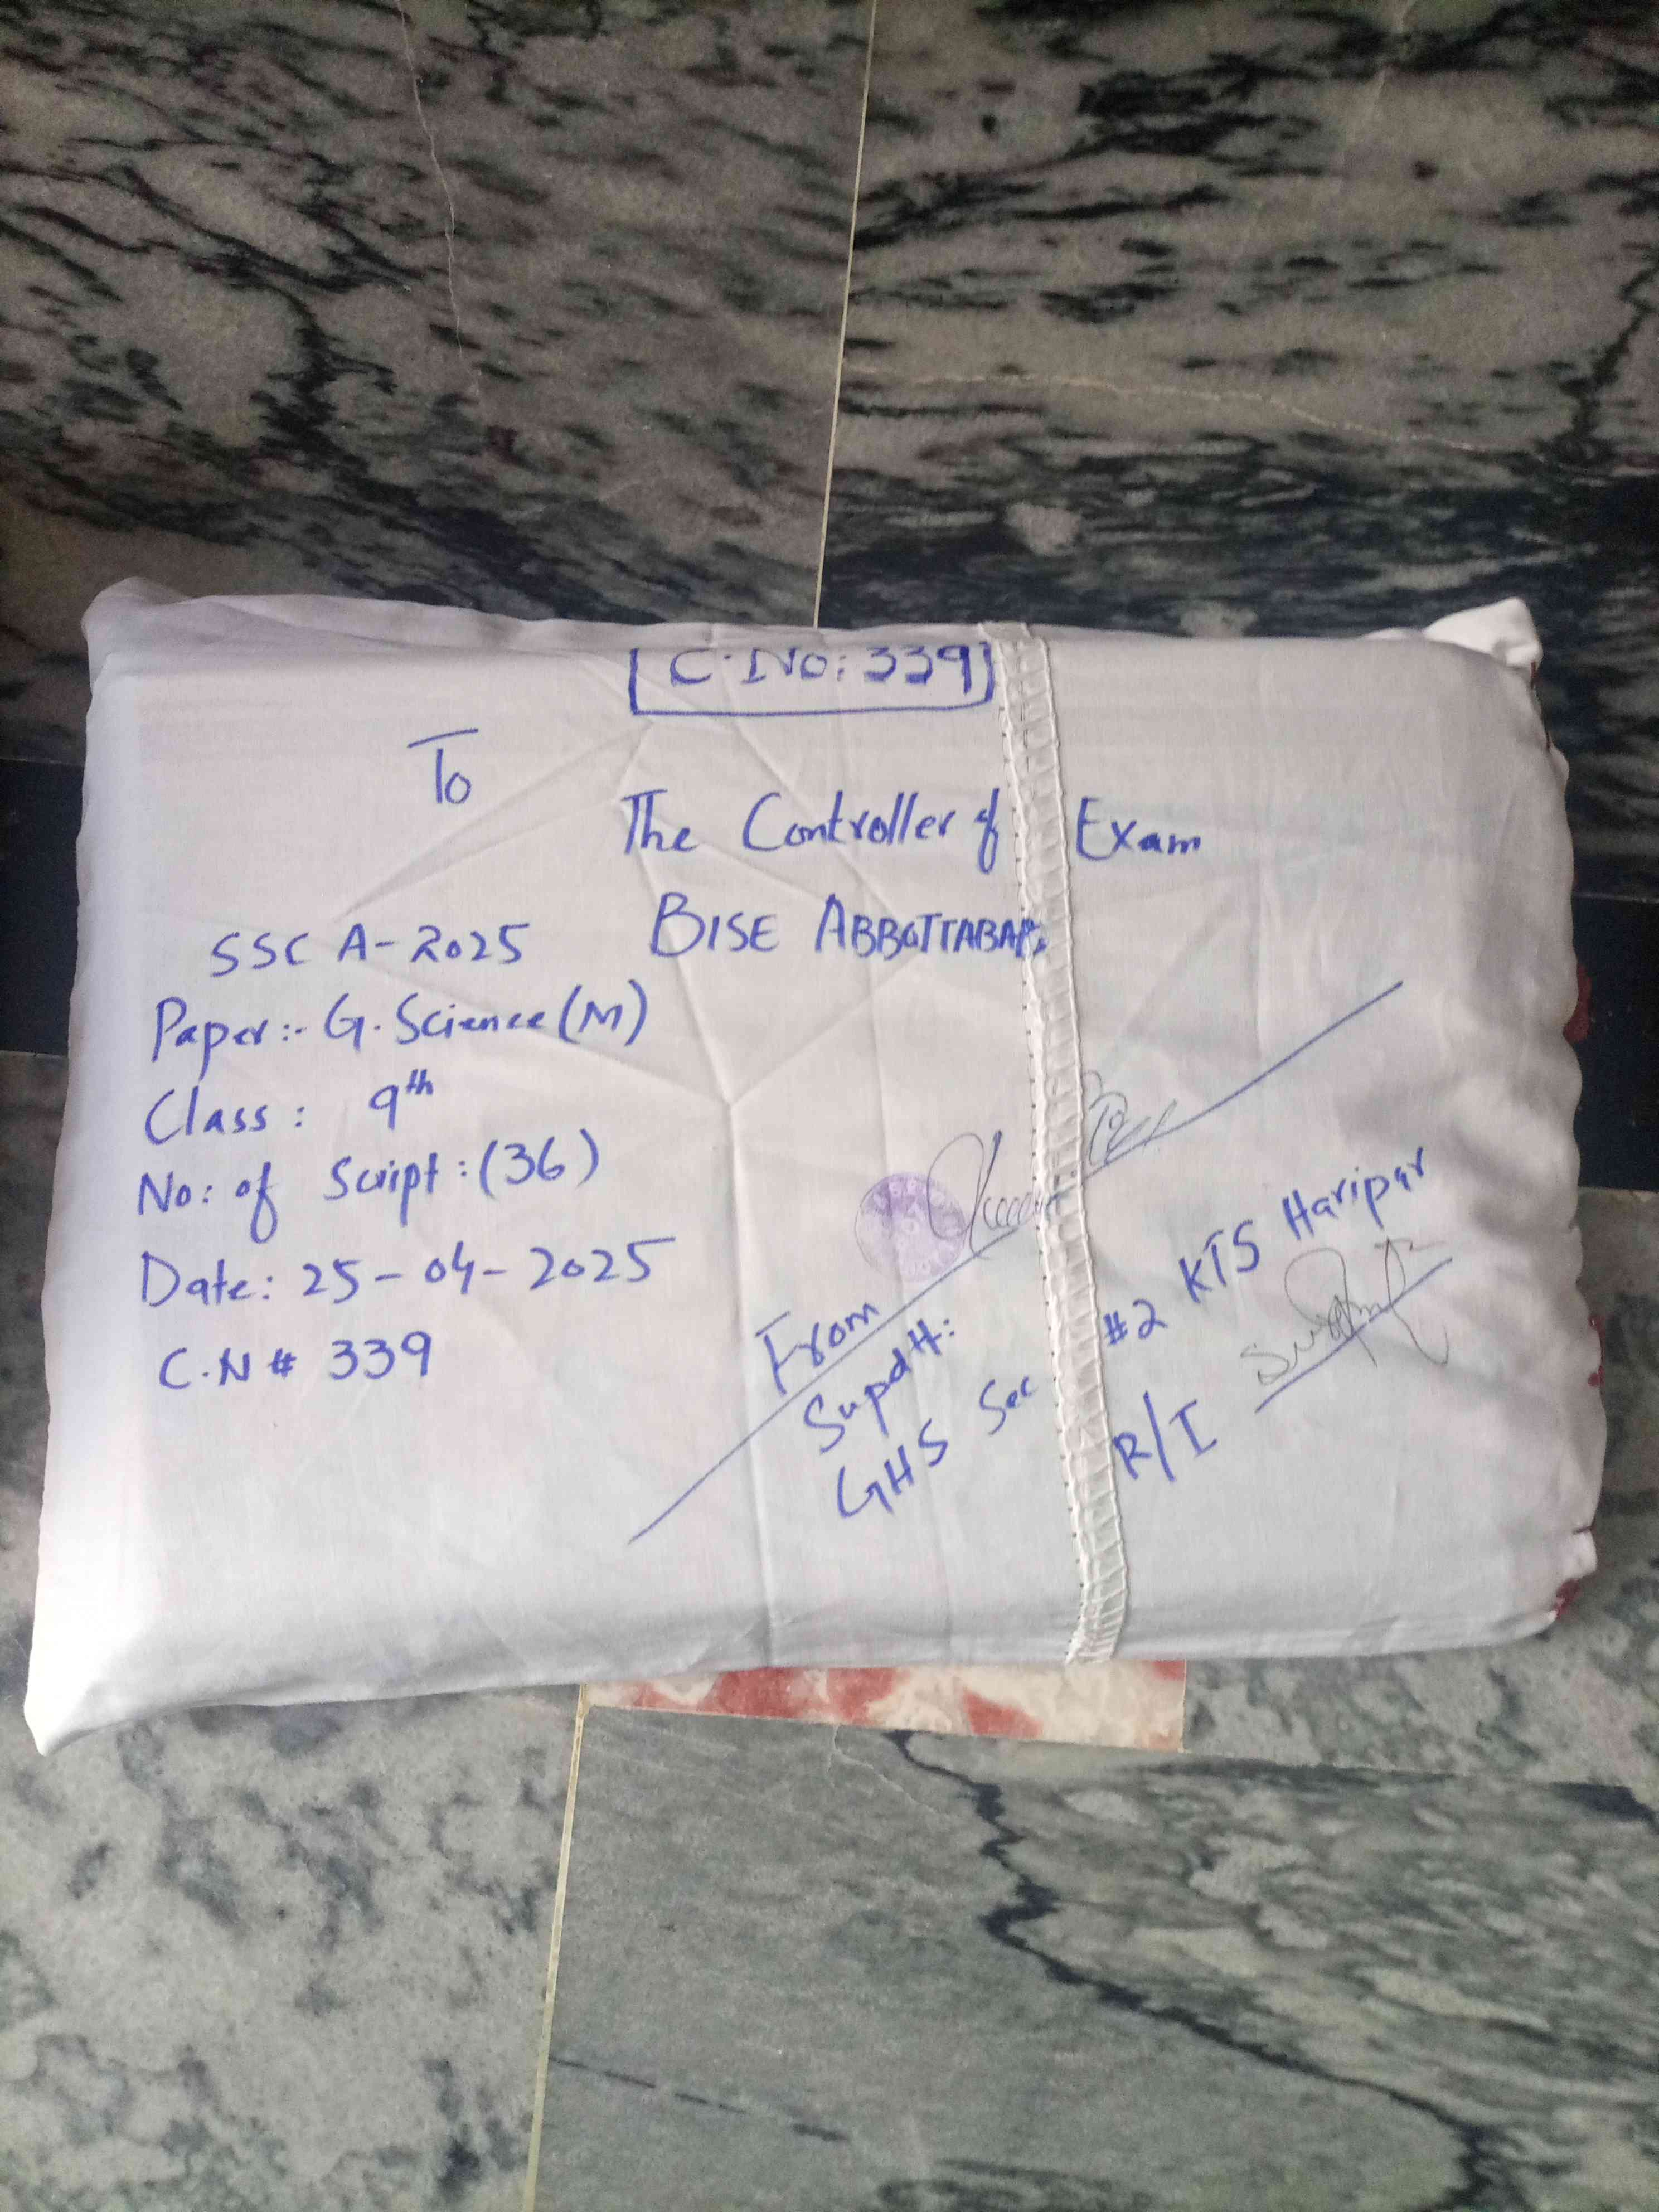 C.No: 339
To
The Controller of Exam
BISE ABBOTTABAD.
SSC A-2025
Paper:- G.Science(M)
Class: 9th
No: of Script:(36)
Date: 25-04-2025
C.N # 339
From
Supdtt:
GHS Sec #2 KTS Haripur
R/I